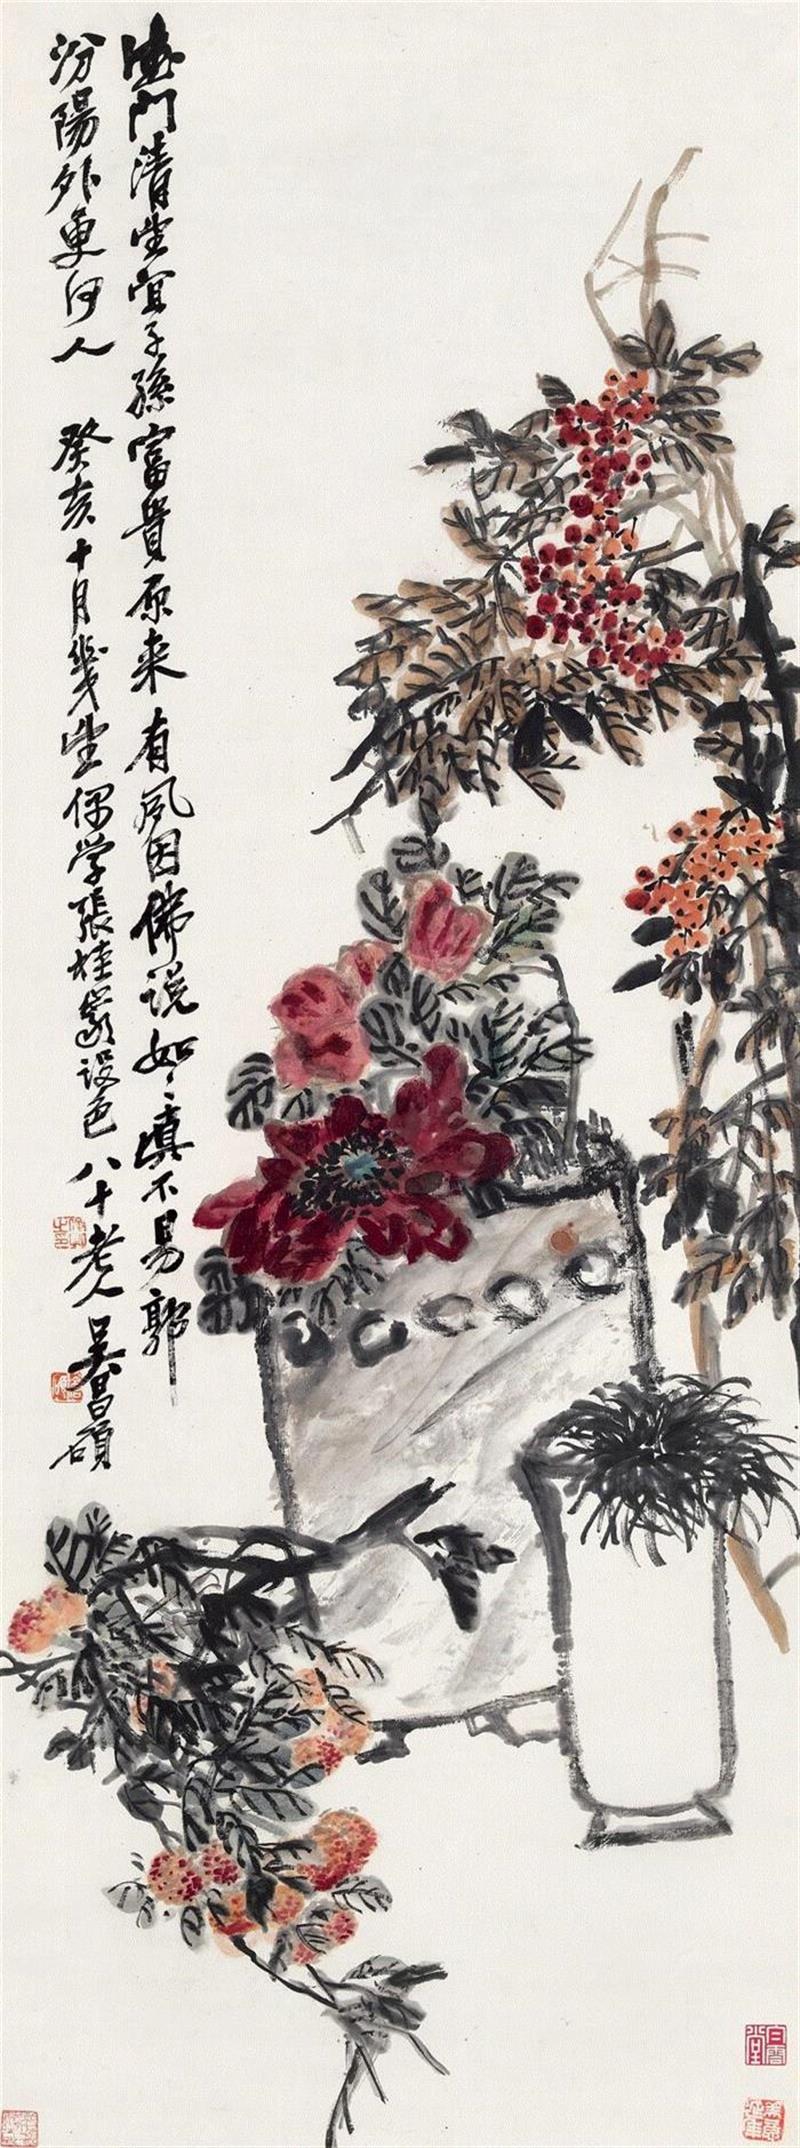 德門清望宜子孫富貴原來有夙因佛說如〻真不易郭
汾陽外更何人　癸亥十月幾望偶學張桂岩設色　八十老人吳昌碩